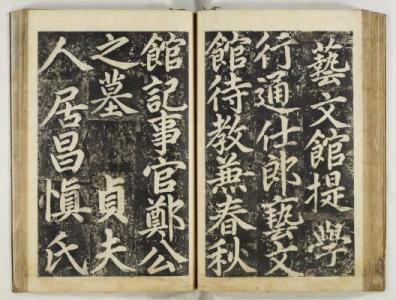 藝文館提學
行通仕郎藝文
館待教兼春秋
館記事官鄭公
之墓 貞夫
人居昌愼氏